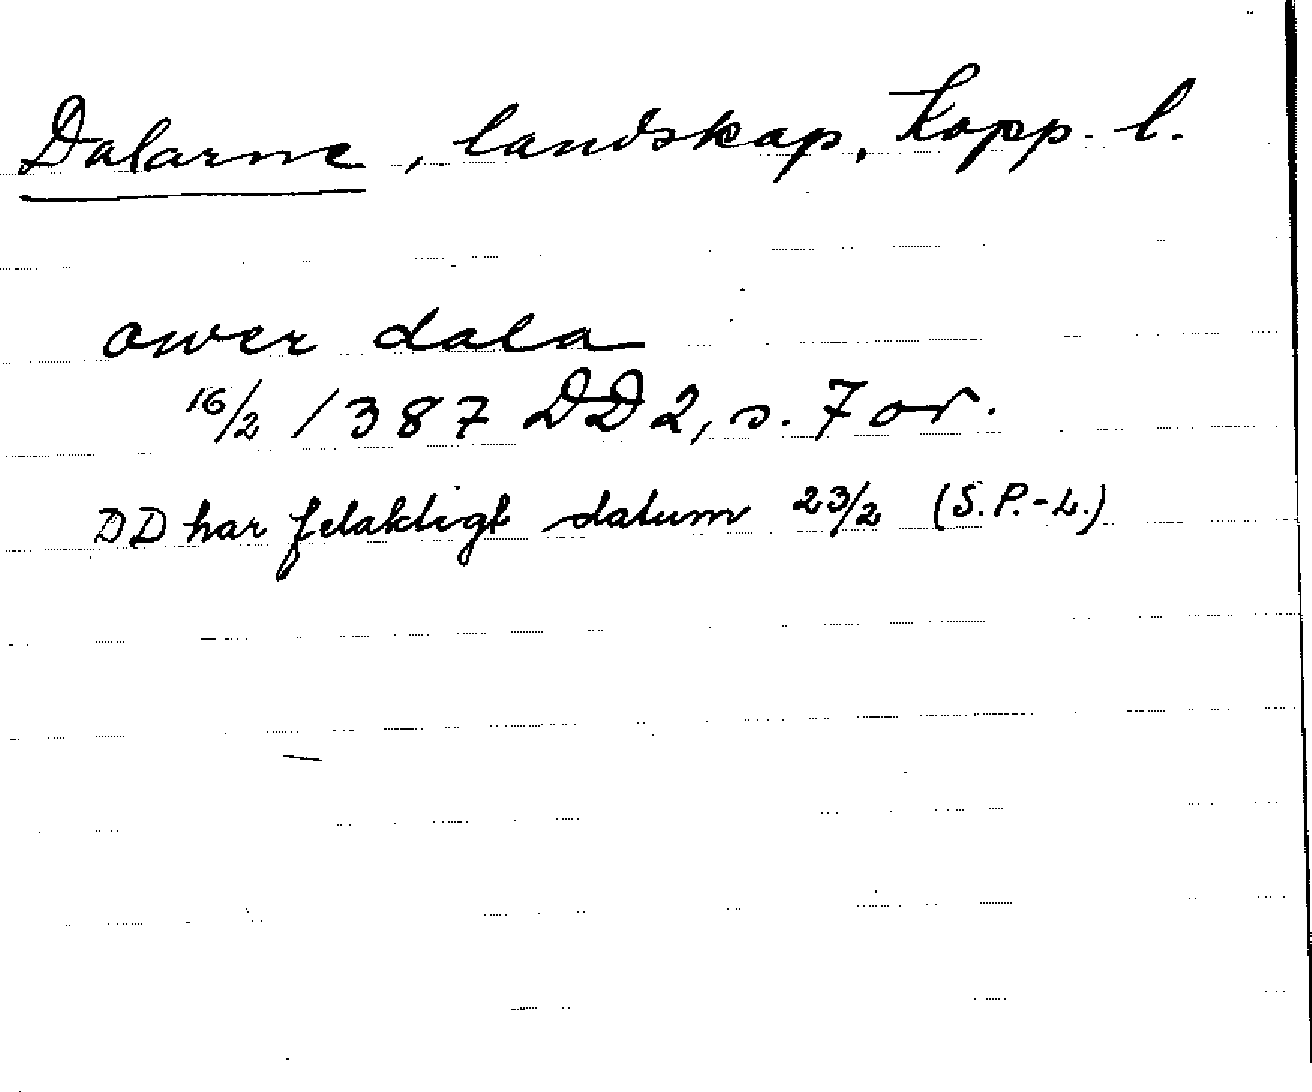 Dalarne, landskap, Kopp. l.
ower dala
16/2 1387 DD2, s. 7 or.
DD har felaktigt datum 23/2 (S.P.-L.)